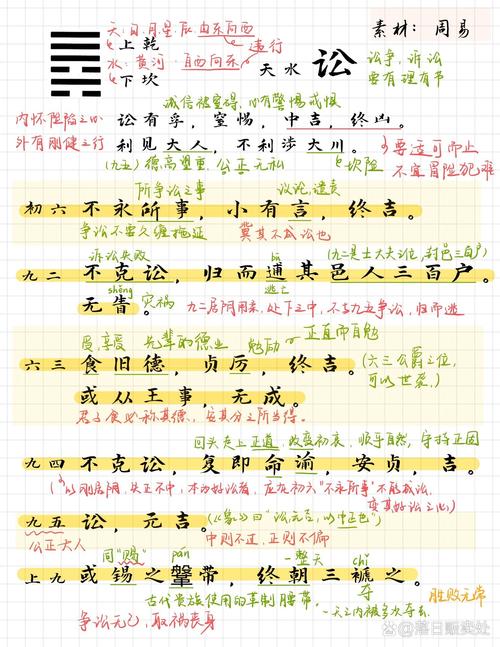 素材：周易
天：日.月.星.辰.由东向西
上乾
违行
水：黄河 自西向东
下坎
天水 讼
讼争，诉讼
要有理有节
诚信被窒碍，心有警惕戒惧
内怀险陷之心
外有刚健之行
讼有孚，窒惕，中吉，终凶。
利见大人，不利涉大川。
要适可而止
不宜冒险犯难
(九五)德高望重，公正无私
坎险
所争讼之事
议论，谴责
初六 不永所事，小有言，终吉。
争讼不要久缠拖延
冀其不成讼也
诉讼失败
(九二是士大夫之位，封邑三百户)
bū
九二 不克讼，归而逋其邑人三百户，
逃亡
shěng
无眚。
灾祸
九二居刚用柔，处下之中，不与九五争讼，归而逃
受，享受
先辈的德业
勉励
正直而自勉
六三 食旧德，贞厉，终吉。
(六三公爵之位，
可以世袭，)
或从王事，无成。
君子食必称其德，安其分之所当得。
回头走上正道，改变初衷，顺乎自然，守持正固
九四 不克讼，复即命渝，安贞，吉。
(以刚居阴，失正不中，本为好讼者，应在初六"不永所事"不能成讼，
变其好讼之心)
九五 讼，元吉。
(《象》曰"讼元吉，以中正也")
公正大人
中则不过，正则不偏
同"赐"
pán
一整天
chǐ
上九 或锡之鞶带，终朝三褫之。
夺
古代贵族使用的革制腰带.
一天之内被多次夺去.
胜败无常
争讼无已，取祸丧身
@落日贩卖处